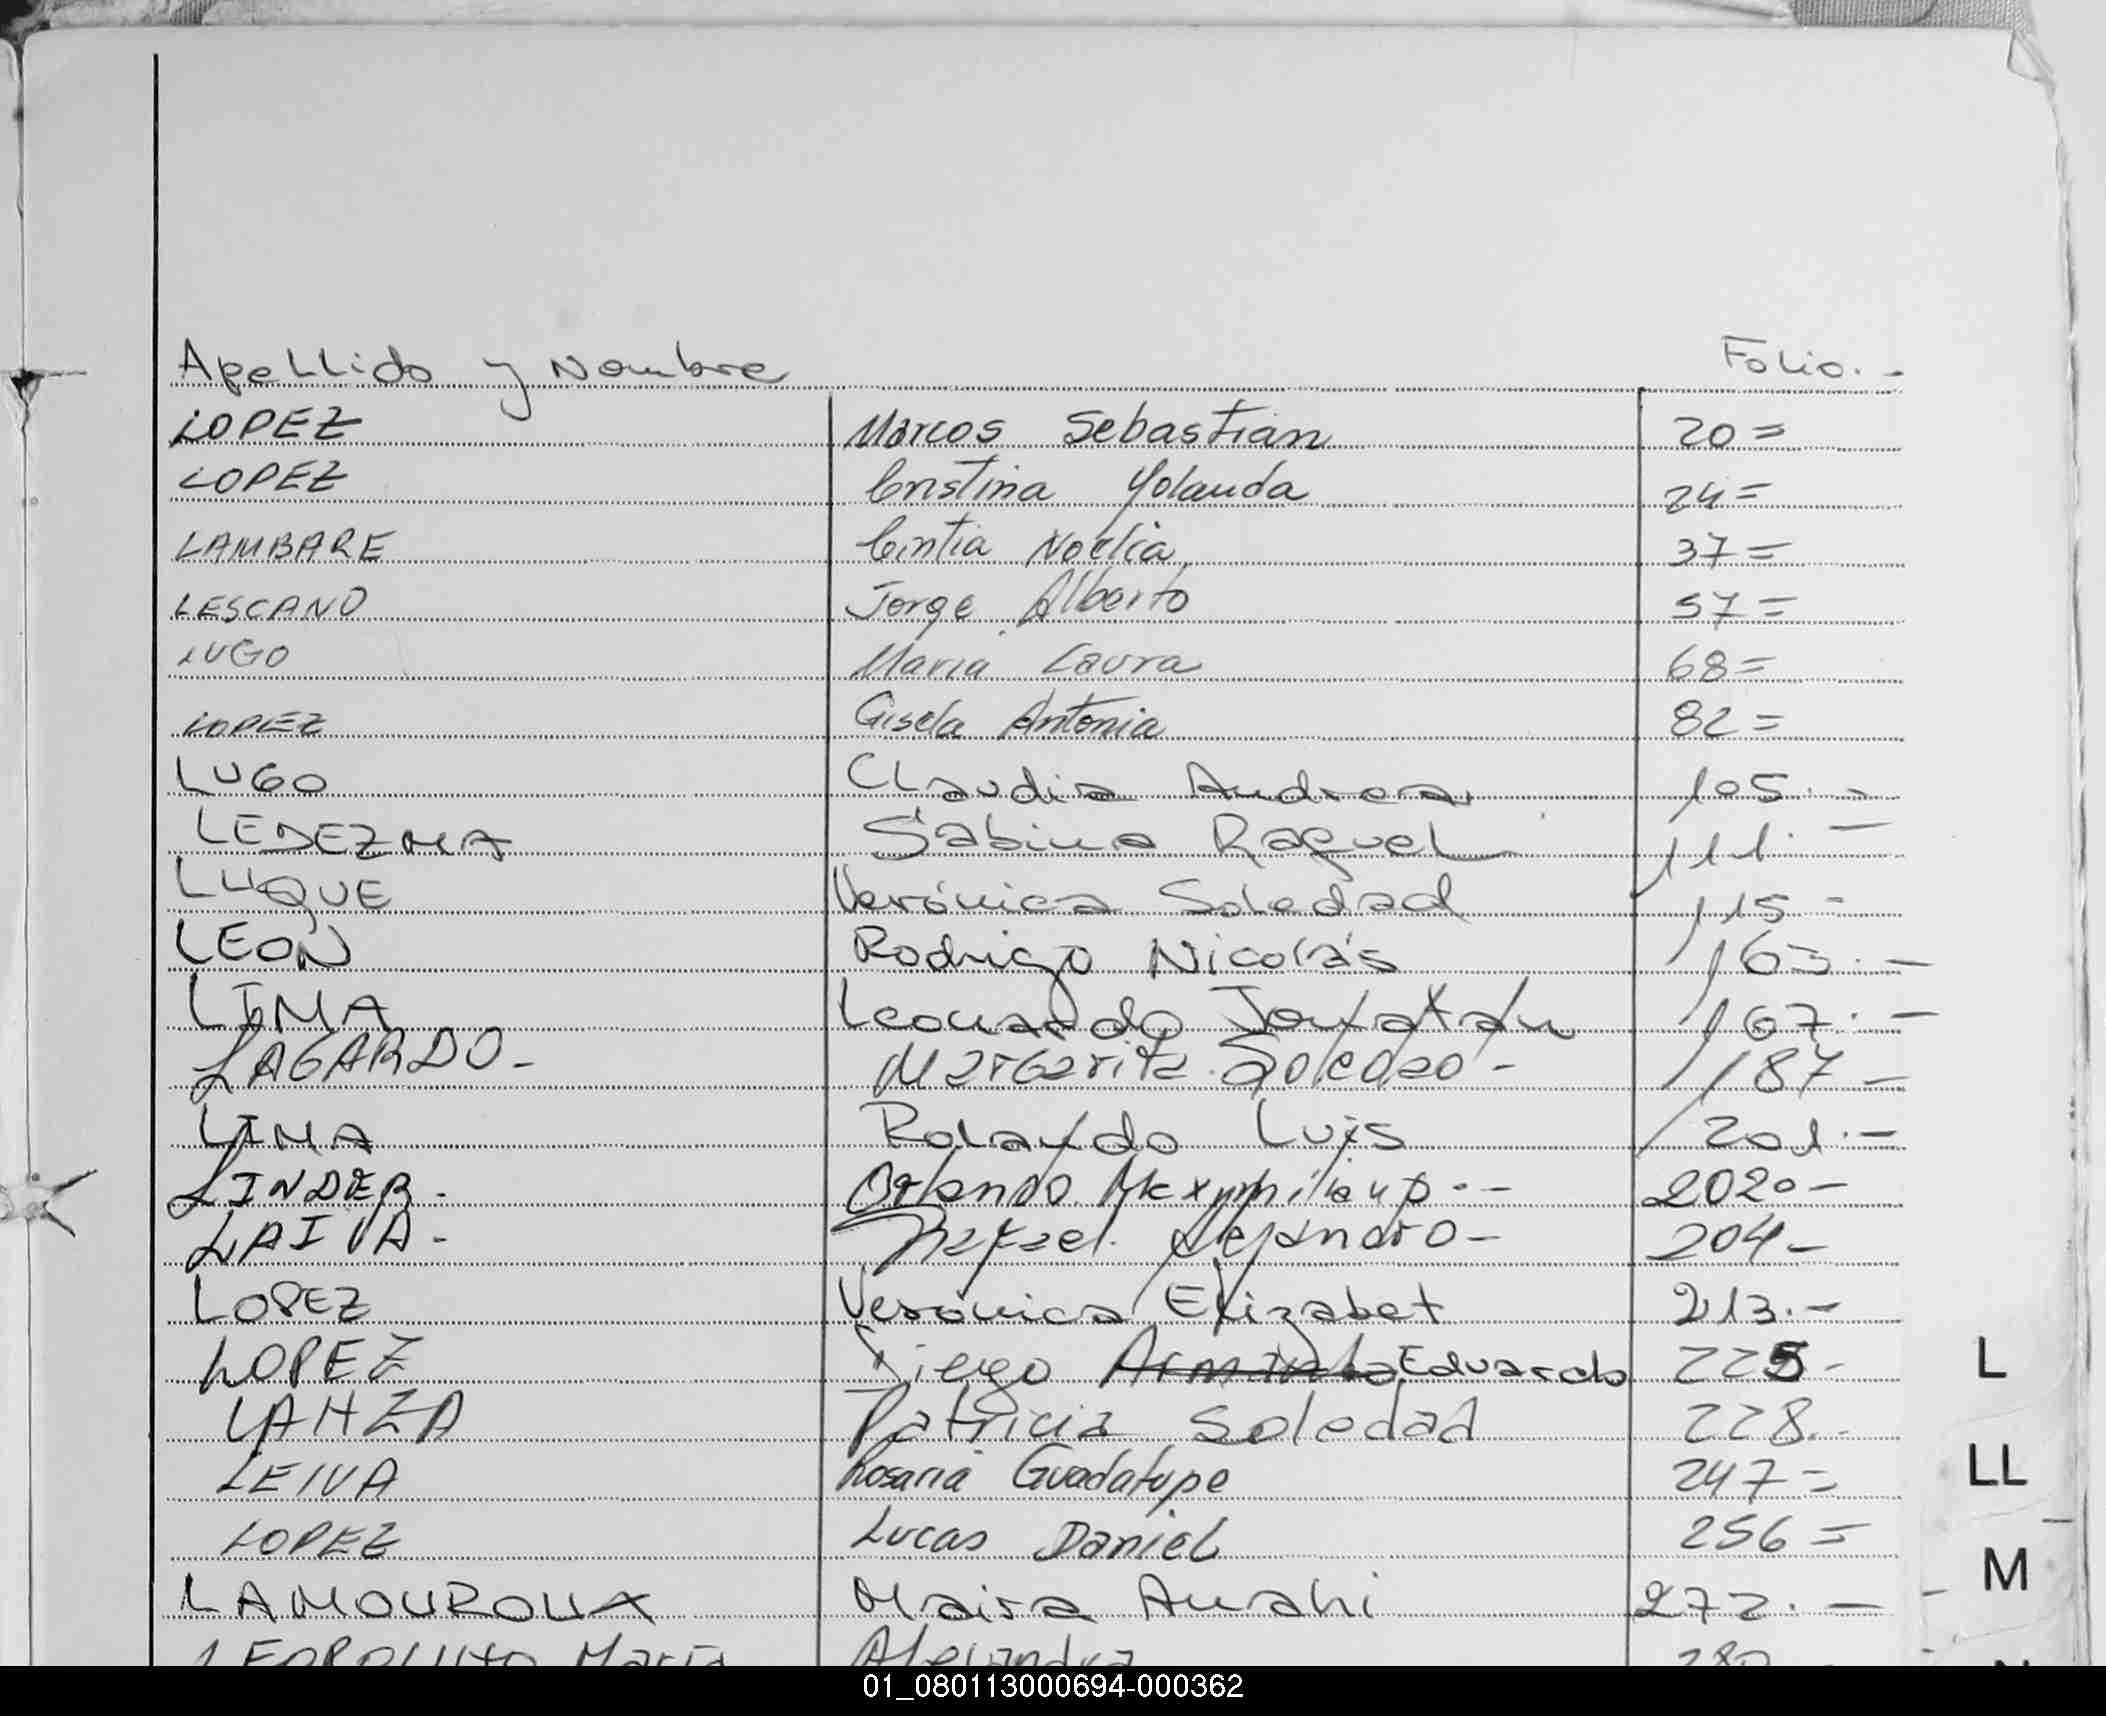 Apellido y Nombre Folio.-
LOPEZ Marcos Sebastian 20=
LOPEZ Cristina Yolanda 24=
LAMBARE Cintia Noelia 37=
LESCANO Jorge Alberto 57=
LUGO Maria Laura 68=
LOPEZ Gisela Antonia 82=
LUGO Claudia Andrea 105.-
LEDEZMA Sabina Raquel 111.-
LUQUE Verónica Soledad 115-
LEON Rodrigo Nicolás 163.-
LIMA Leonardo Jonatan 167.-
LAGARDO- Margarita Soledad- 187-
LIMA Rolando Luis 201.-
LINDER.- Orlando Maxymiliano.- 202-
LAIVA- Rafael Alejandro- 204-
LOPEZ Verónica Elizabet 213.-
LOPEZ Diego Armando Eduardo 225-
LANZA Patricia Soledad 228.-
LEIVA Rosaria Guadalupe 247=
LOPEZ Lucas Daniel 256=
LAMOUROUX Maira Anahi 272.-
Maria Alejandra 280
L
LL
M
01_080113000694-000362